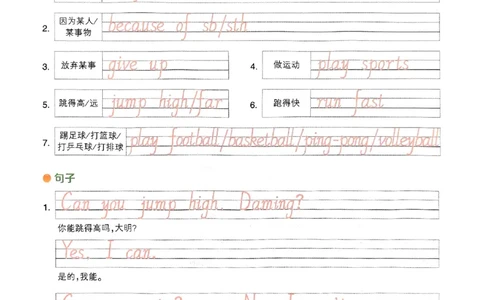 2. 因为某人/某事物 because of sb/sth
3. 放弃某事 give up 4. 做运动 play sports
5. 跳得高/远 jump high/far 6. 跑得快 run fast
7. 踢足球/打篮球/打乒乓球/打排球 play football/basketball/ping-pong/volleyball
句子
1. Can you jump high, Daming?
你能跳得高吗,大明?
Yes, I can.
是的,我能。